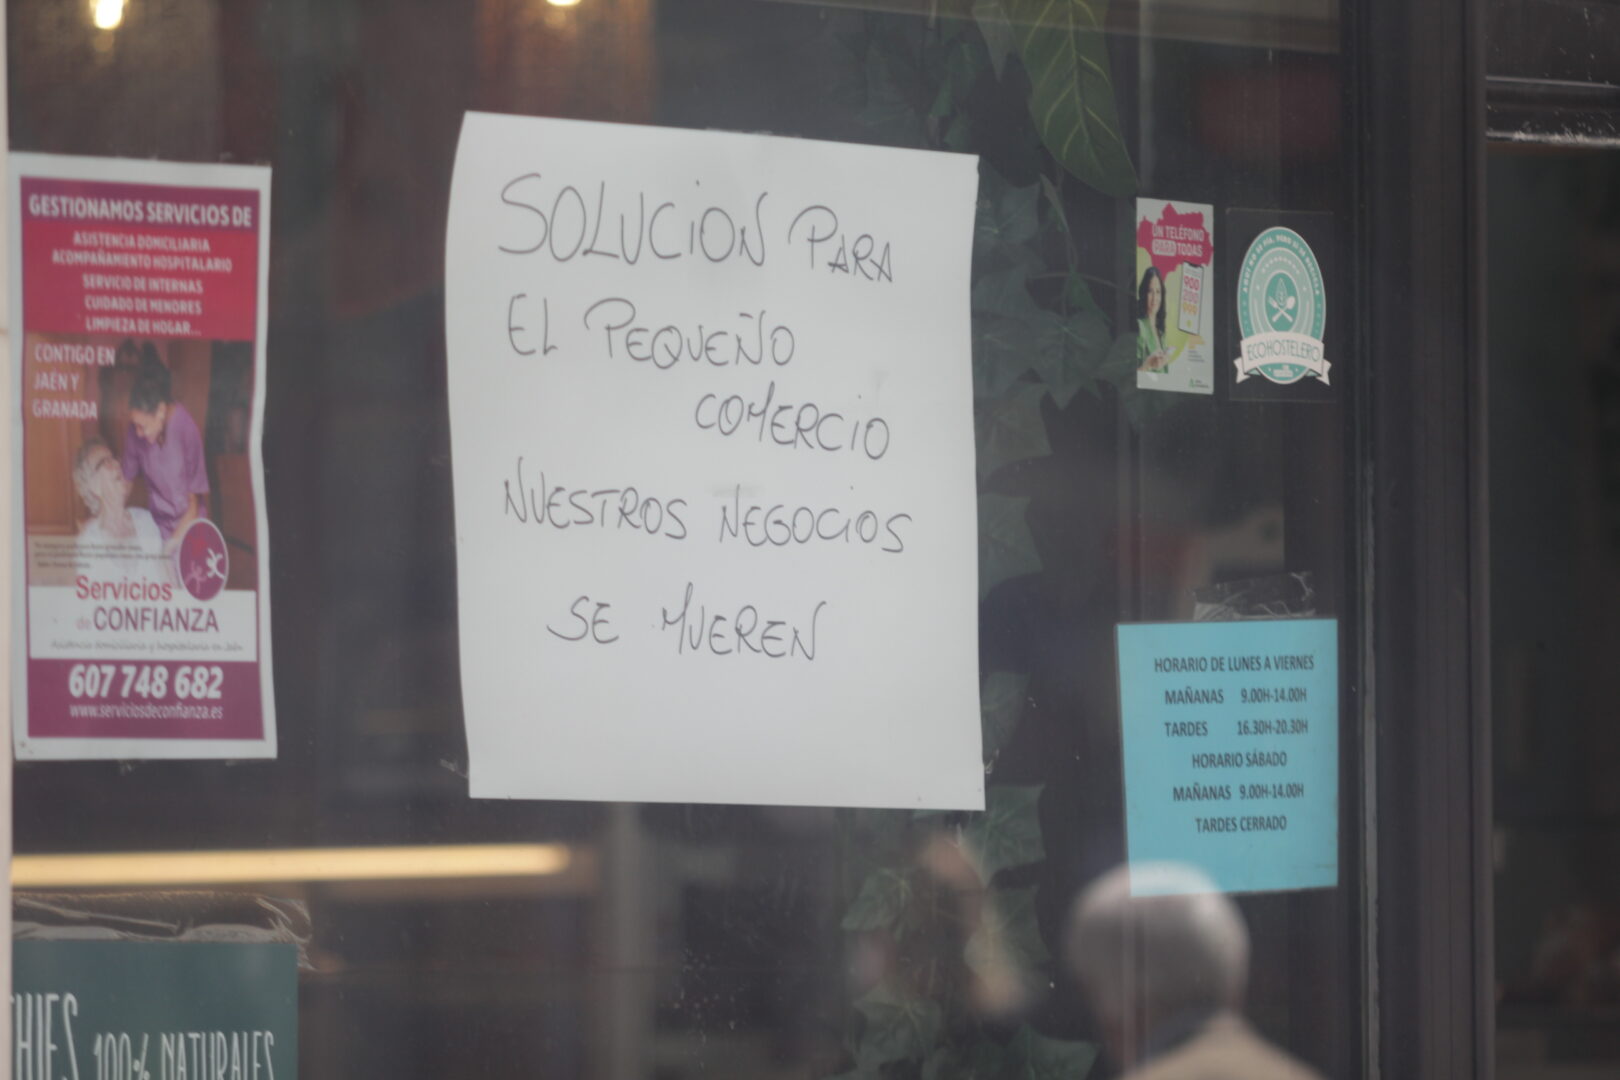 GESTIONAMOS SERVICIOS DE
ASISTENCIA DOMICILIARIA
ACOMPAÑAMIENTO HOSPITALARIO
SERVICIO DE INTERNAS
CUIDADO DE MENORES
LIMPIEZA DE HOGAR...
CONTIGO EN
JAÉN Y
GRANADA
Servicios
de CONFIANZA
Asistencia domiciliaria y hospitalaria en Jaén
607 748 682
www.serviciosdeconfianza.es
SOLUCIÓN PARA
EL PEQUEÑO
COMERCIO
NUESTROS NEGOCIOS
SE MUEREN
UN TELÉFONO
PARA TODAS
900
200
999
ECOHOSTELERO
HORARIO DE LUNES A VIERNES
MAÑANAS 9.00H-14.00H
TARDES 16.30H-20.30H
HORARIO SÁBADO
MAÑANAS 9.00H-14.00H
TARDES CERRADO
HIES 100% NATURALES